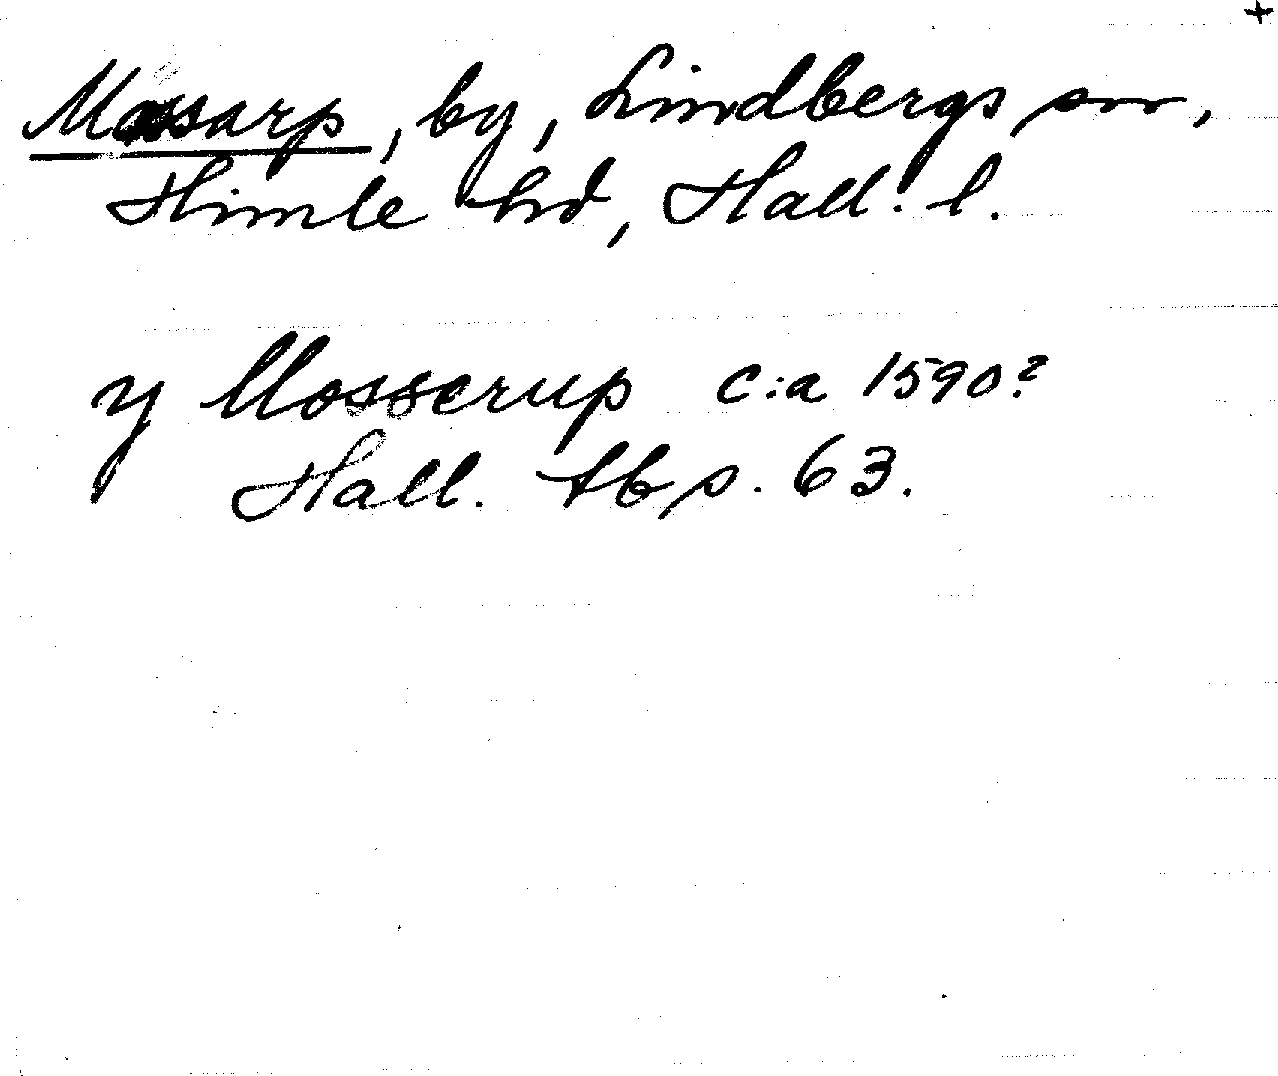 +
Mossarp, by, Lindbergs sn,
Himle hd, Hall. l.
y Mosserup c:a 1590?
Hall. tb s. 63.